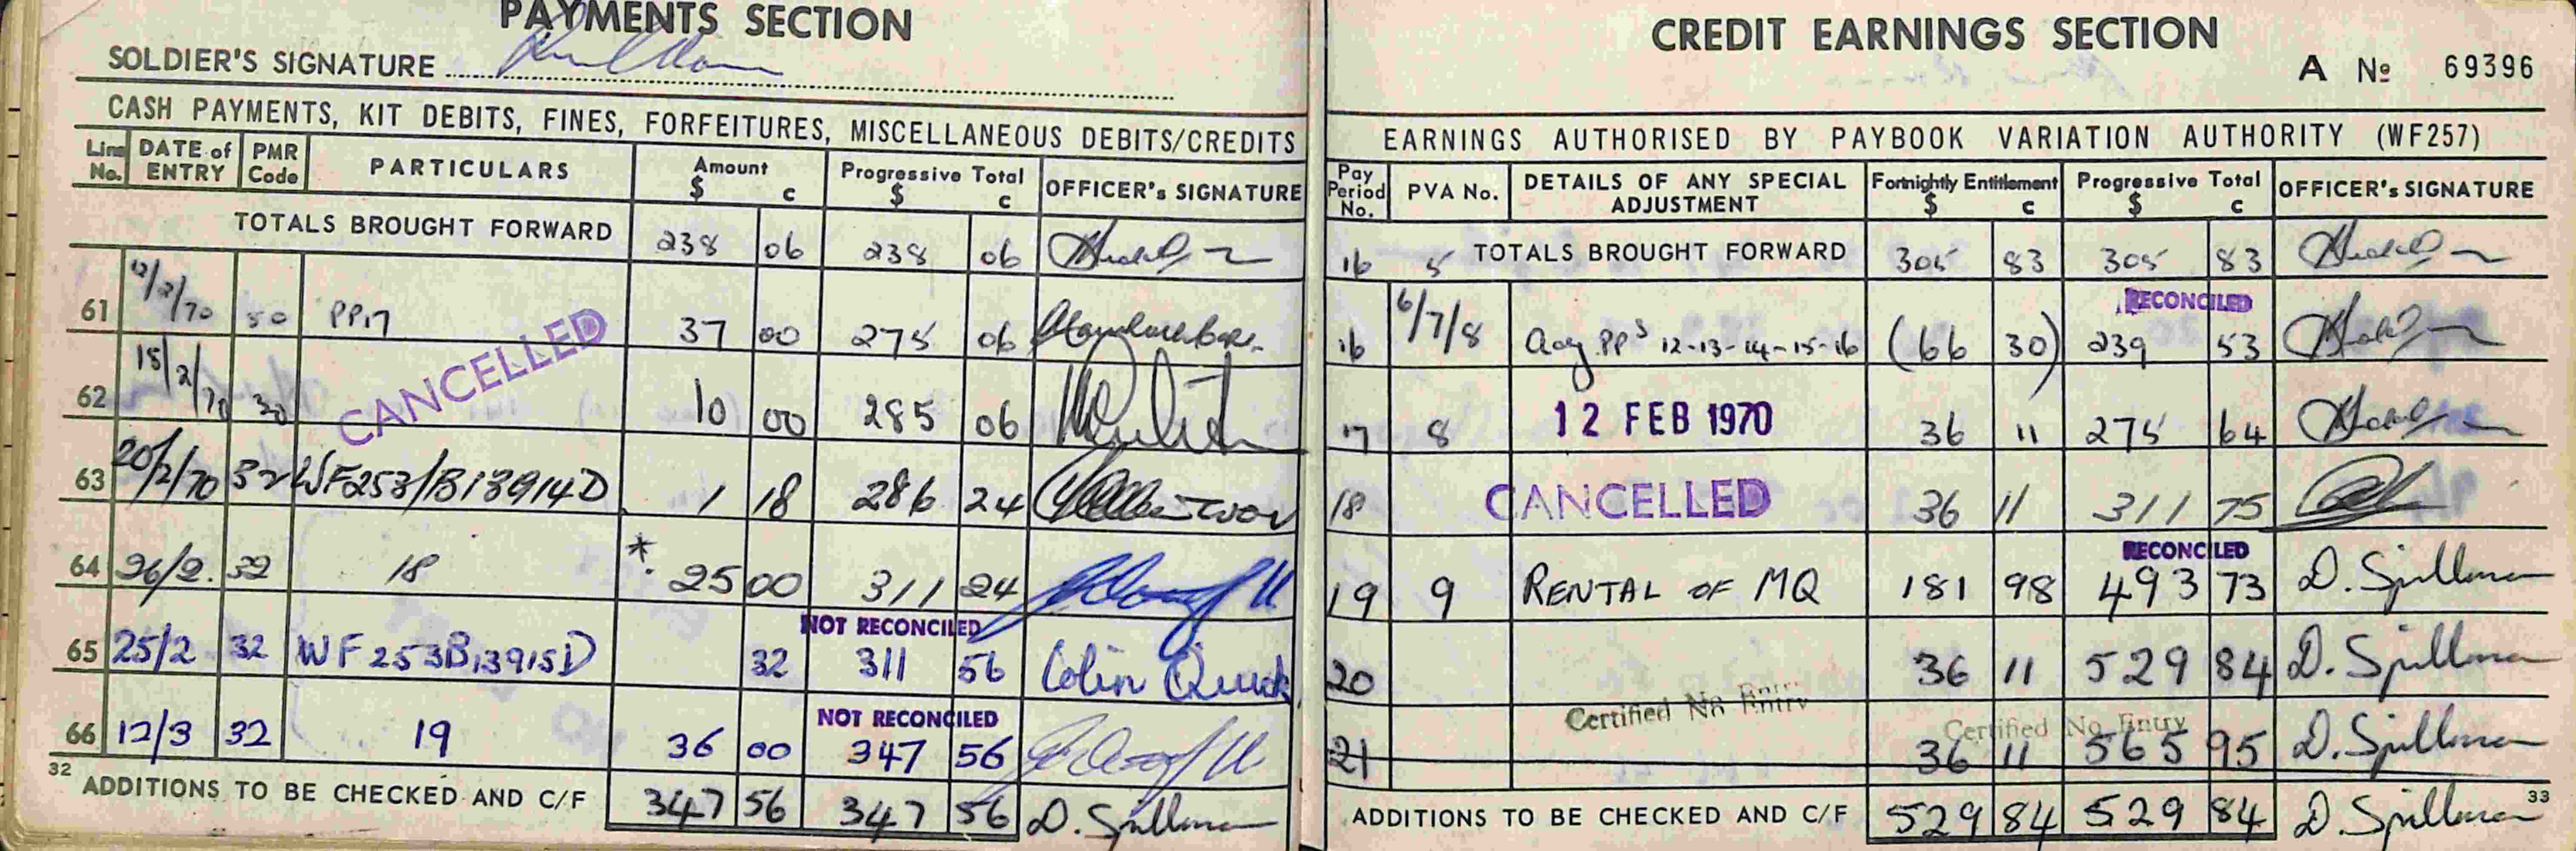 PAYMENTS SECTION
SOLDIER'S SIGNATURE
CASH PAYMENTS, KIT DEBITS, FINES, FORFEITURES, MISCELLANEOUS DEBITS/CREDITS
Line No. DATE of ENTRY PMR Code PARTICULARS Amount $ c Progressive Total $ c OFFICER's SIGNATURE
TOTALS BROUGHT FORWARD 238 06 238 06
61 12/2/70 50 PP17 37 00 275 06
CANCELLED
62 15/2/70 30 10 00 285 06
63 20/2/70 32 WF253/B13914D 1 18 286 24
64 26/2. 32 18 *. 25 00 311 24
NOT RECONCILED
65 25/2 32 WF253B13915D 32 311 56 Colin Quick
NOT RECONCILED
66 12/3 32 19 36 00 347 56
32 ADDITIONS TO BE CHECKED AND C/F 347 56 347 56 D. Spillman
CREDIT EARNINGS SECTION
A No 69396
EARNINGS AUTHORISED BY PAYBOOK VARIATION AUTHORITY (WF257)
Pay Period No. PVA No. DETAILS OF ANY SPECIAL ADJUSTMENT Fortnightly Entitlement $ c Progressive Total $ c OFFICER's SIGNATURE
16 5 TOTALS BROUGHT FORWARD 305 83 305 83
RECONCILED
16 6/7/8 Adj PPs 12-13-14-15-16 (66 30) 239 53
17 8 12 FEB 1970 36 11 275 64
18 CANCELLED 36 11 311 75
RECONCILED
19 9 RENTAL OF MQ 181 98 493 73 D. Spillman
20 36 11 529 84 D. Spillman
Certified No Entry
Certified No Entry
21 36 11 565 95 D. Spillman
ADDITIONS TO BE CHECKED AND C/F 529 84 529 84 D. Spillman 33